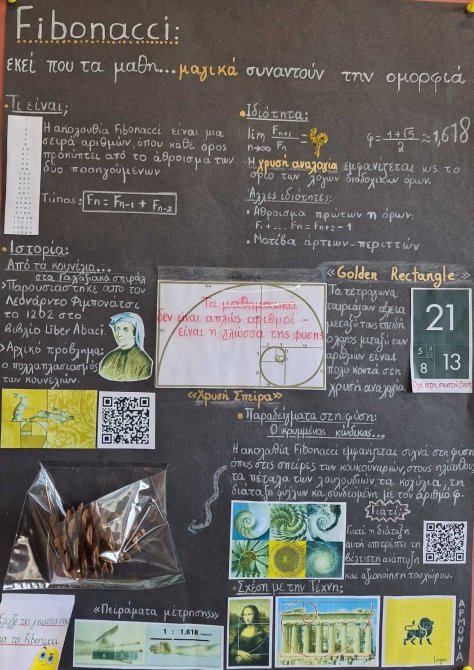 Fibonacci:
εκεί που τα μαθη...μαγικά συναντούν την ομορφιά
Τι είναι;
Η ακολουθία Fibonacci είναι μια
σειρά αριθμών, όπου κάθε όρος
προκύπτει από το άθροισμα των
δύο προηγούμενων
Τύπος: Fn = Fn-1 + Fn-2
Ιδιότητα:
lim Fn+1/Fn = φ
n→∞
φ=1+√5/2 ≈ 1,618
Η χρυσή αναλογία εμφανίζεται ως το
όριο των λόγων διαδοχικών όρων.
Άλλες ιδιότητες:
Άθροισμα πρώτων n όρων:
F1 + ... Fn = Fn+2 - 1
Μοτίβα άρτιων-περιττών
Ιστορία:
Από τα κουνέλια...
στα Γαλαξιακά σπιράλ
Παρουσιάστηκε από τον
Λεονάρντο Φιμπονάτσι
το 1202 στο
βιβλίο Liber Abaci.
Αρχικό πρόβλημα:
ο πολλαπλασιασμός
των κουνελιών.
Τα μαθηματικά
δεν είναι απλώς αριθμοί -
είναι η γλώσσα της φύσης
«Χρυσή Σπείρα»
«Golden Rectangle»
Τα τετράγωνα
ταιριάζουν τέλεια
μεταξύ τους επειδή
ο λόγος μεταξύ των
αριθμών είναι
πολύ κοντά στη
χρυσή αναλογία
21
5
3
8
13
Όλα στη σωστή
Παραδείγματα στη φύση:
Ο κρυμμένος κώδικας...
Η ακολουθία Fibonacci εμφανίζεται συχνά στη φύση
όπως στις σπείρες των κουκουναριών, στους ηλίανθους
τα πέταλα των λουλουδιών, τα κοχύλια, τη
διάταξη φύλλων και συνδεδεμένη με τον αριθμό φ.
Γιατί;
Γιατί η διάταξη
αυτή επιτρέπει τη
βέλτιστη ανάπτυξη
και αξιοποίηση του χώρου.
Σχέση με την Τέχνη:
«Πειράματα μέτρησης»
1 : 1.618
τις γνώσεις σου
για το Fibonacci
Logos
ΑΡΜΟΝΙΑ